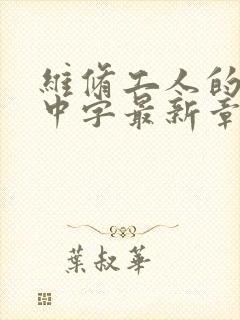 維脩工人的
中字最新章
葉叔華